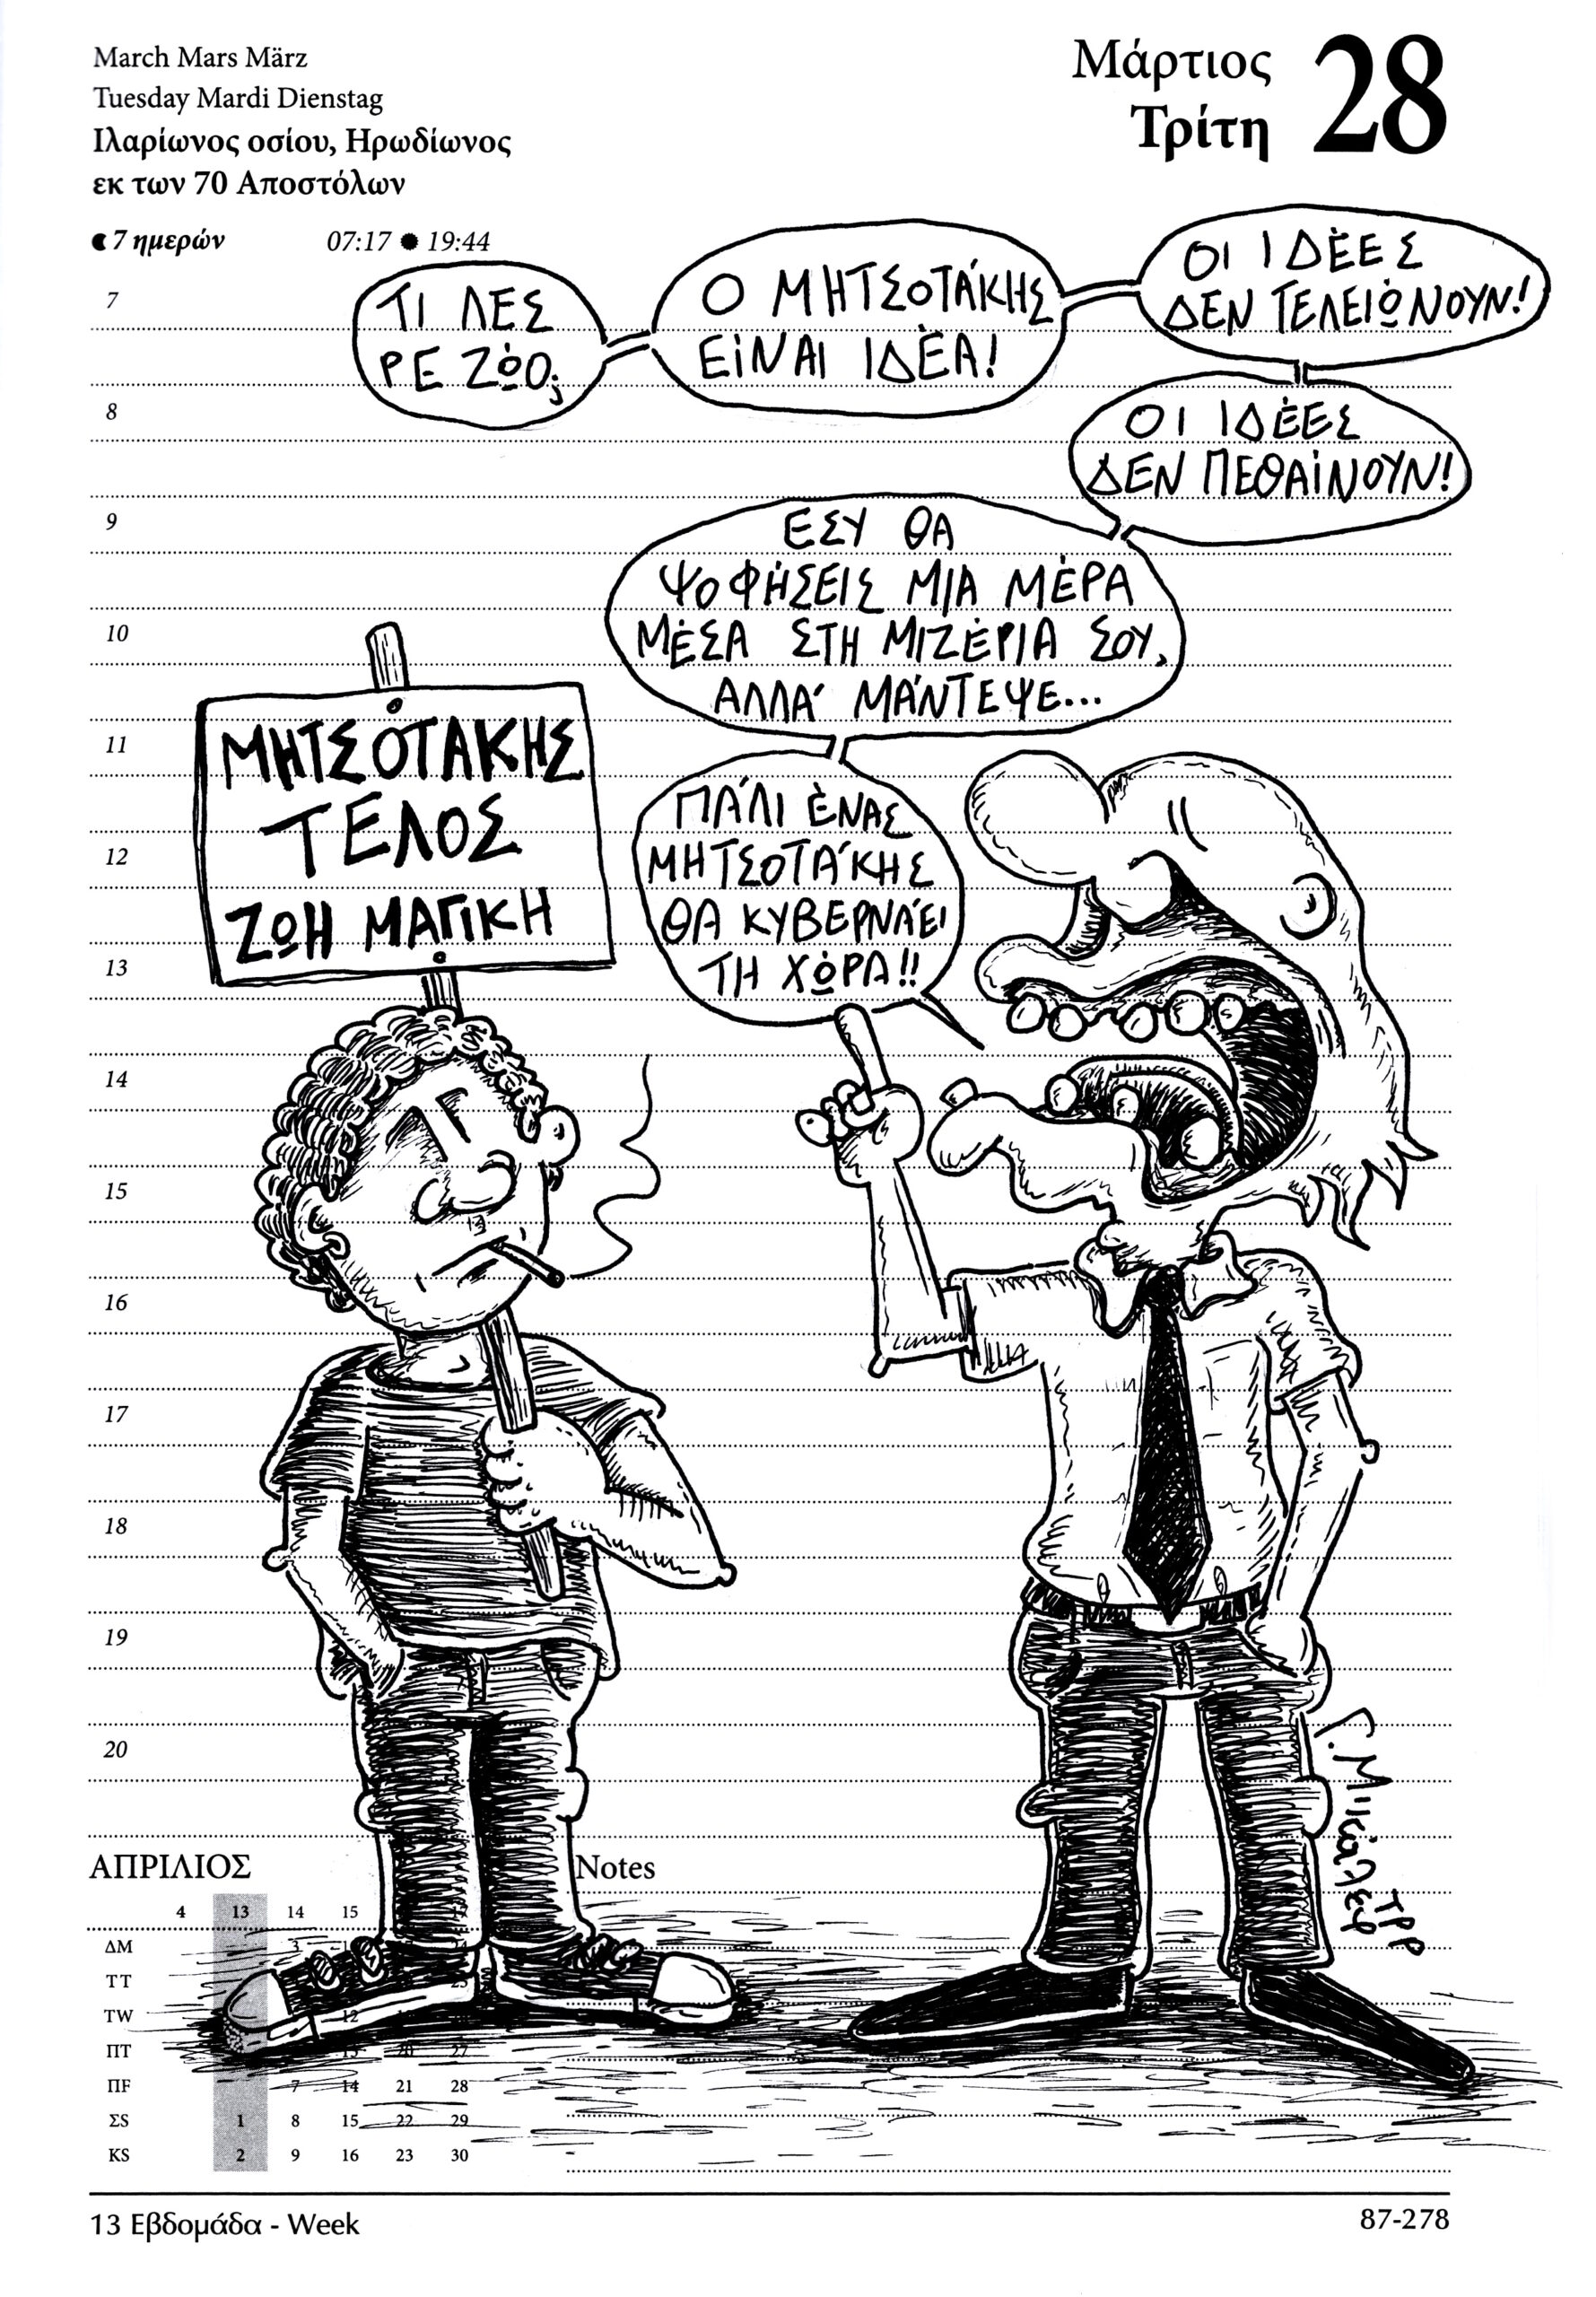 March Mars März
Tuesday Mardi Dienstag
Ιλαρίωνος οσίου, Ηρωδίωνος
εκ των 70 Αποστόλων
7 ημερών 07:17 19:44
Μάρτιος
Τρίτη
28
7
8
9
10
11
12
13
14
15
16
17
18
19
20
ΤΙ ΛΕΣ
ΡΕ ΖΏΟ;
Ο ΜΗΤΣΟΤΆΚΗΣ
ΕΊΝΑΙ ΙΔΈΑ!
ΟΙ ΙΔΈΕΣ
ΔΕΝ ΤΕΛΕΙΏΝΟΥΝ!
ΟΙ ΙΔΈΕΣ
ΔΕΝ ΠΕΘΑΊΝΟΥΝ!
ΕΣΥ ΘΑ
ΨΟΦΉΣΕΙΣ ΜΙΑ ΜΈΡΑ
ΜΈΣΑ ΣΤΗ ΜΙΖΈΡΙΑ ΣΟΥ,
ΑΛΛΆ ΜΆΝΤΕΨΕ...
ΠΆΛΙ ΈΝΑΣ
ΜΗΤΣΟΤΆΚΗΣ
ΘΑ ΚΥΒΕΡΝΆΕΙ
ΤΗ ΧΏΡΑ!!
ΜΗΤΣΟΤΑΚΗΣ
ΤΕΛΟΣ
ΖΩΗ ΜΑΓΙΚΗ
Γ. Μικάλεφ
ΤΡΡ
ΑΠΡΙΛΙΟΣ
4 13 14 15 17
ΔM 3
ΤT
ΤW 12
ΠT 13 20 27
ΠF 7 14 21 28
ΣS 1 8 15 22 29
ΚS 2 9 16 23 30
Notes
13 Εβδομάδα - Week
87-278